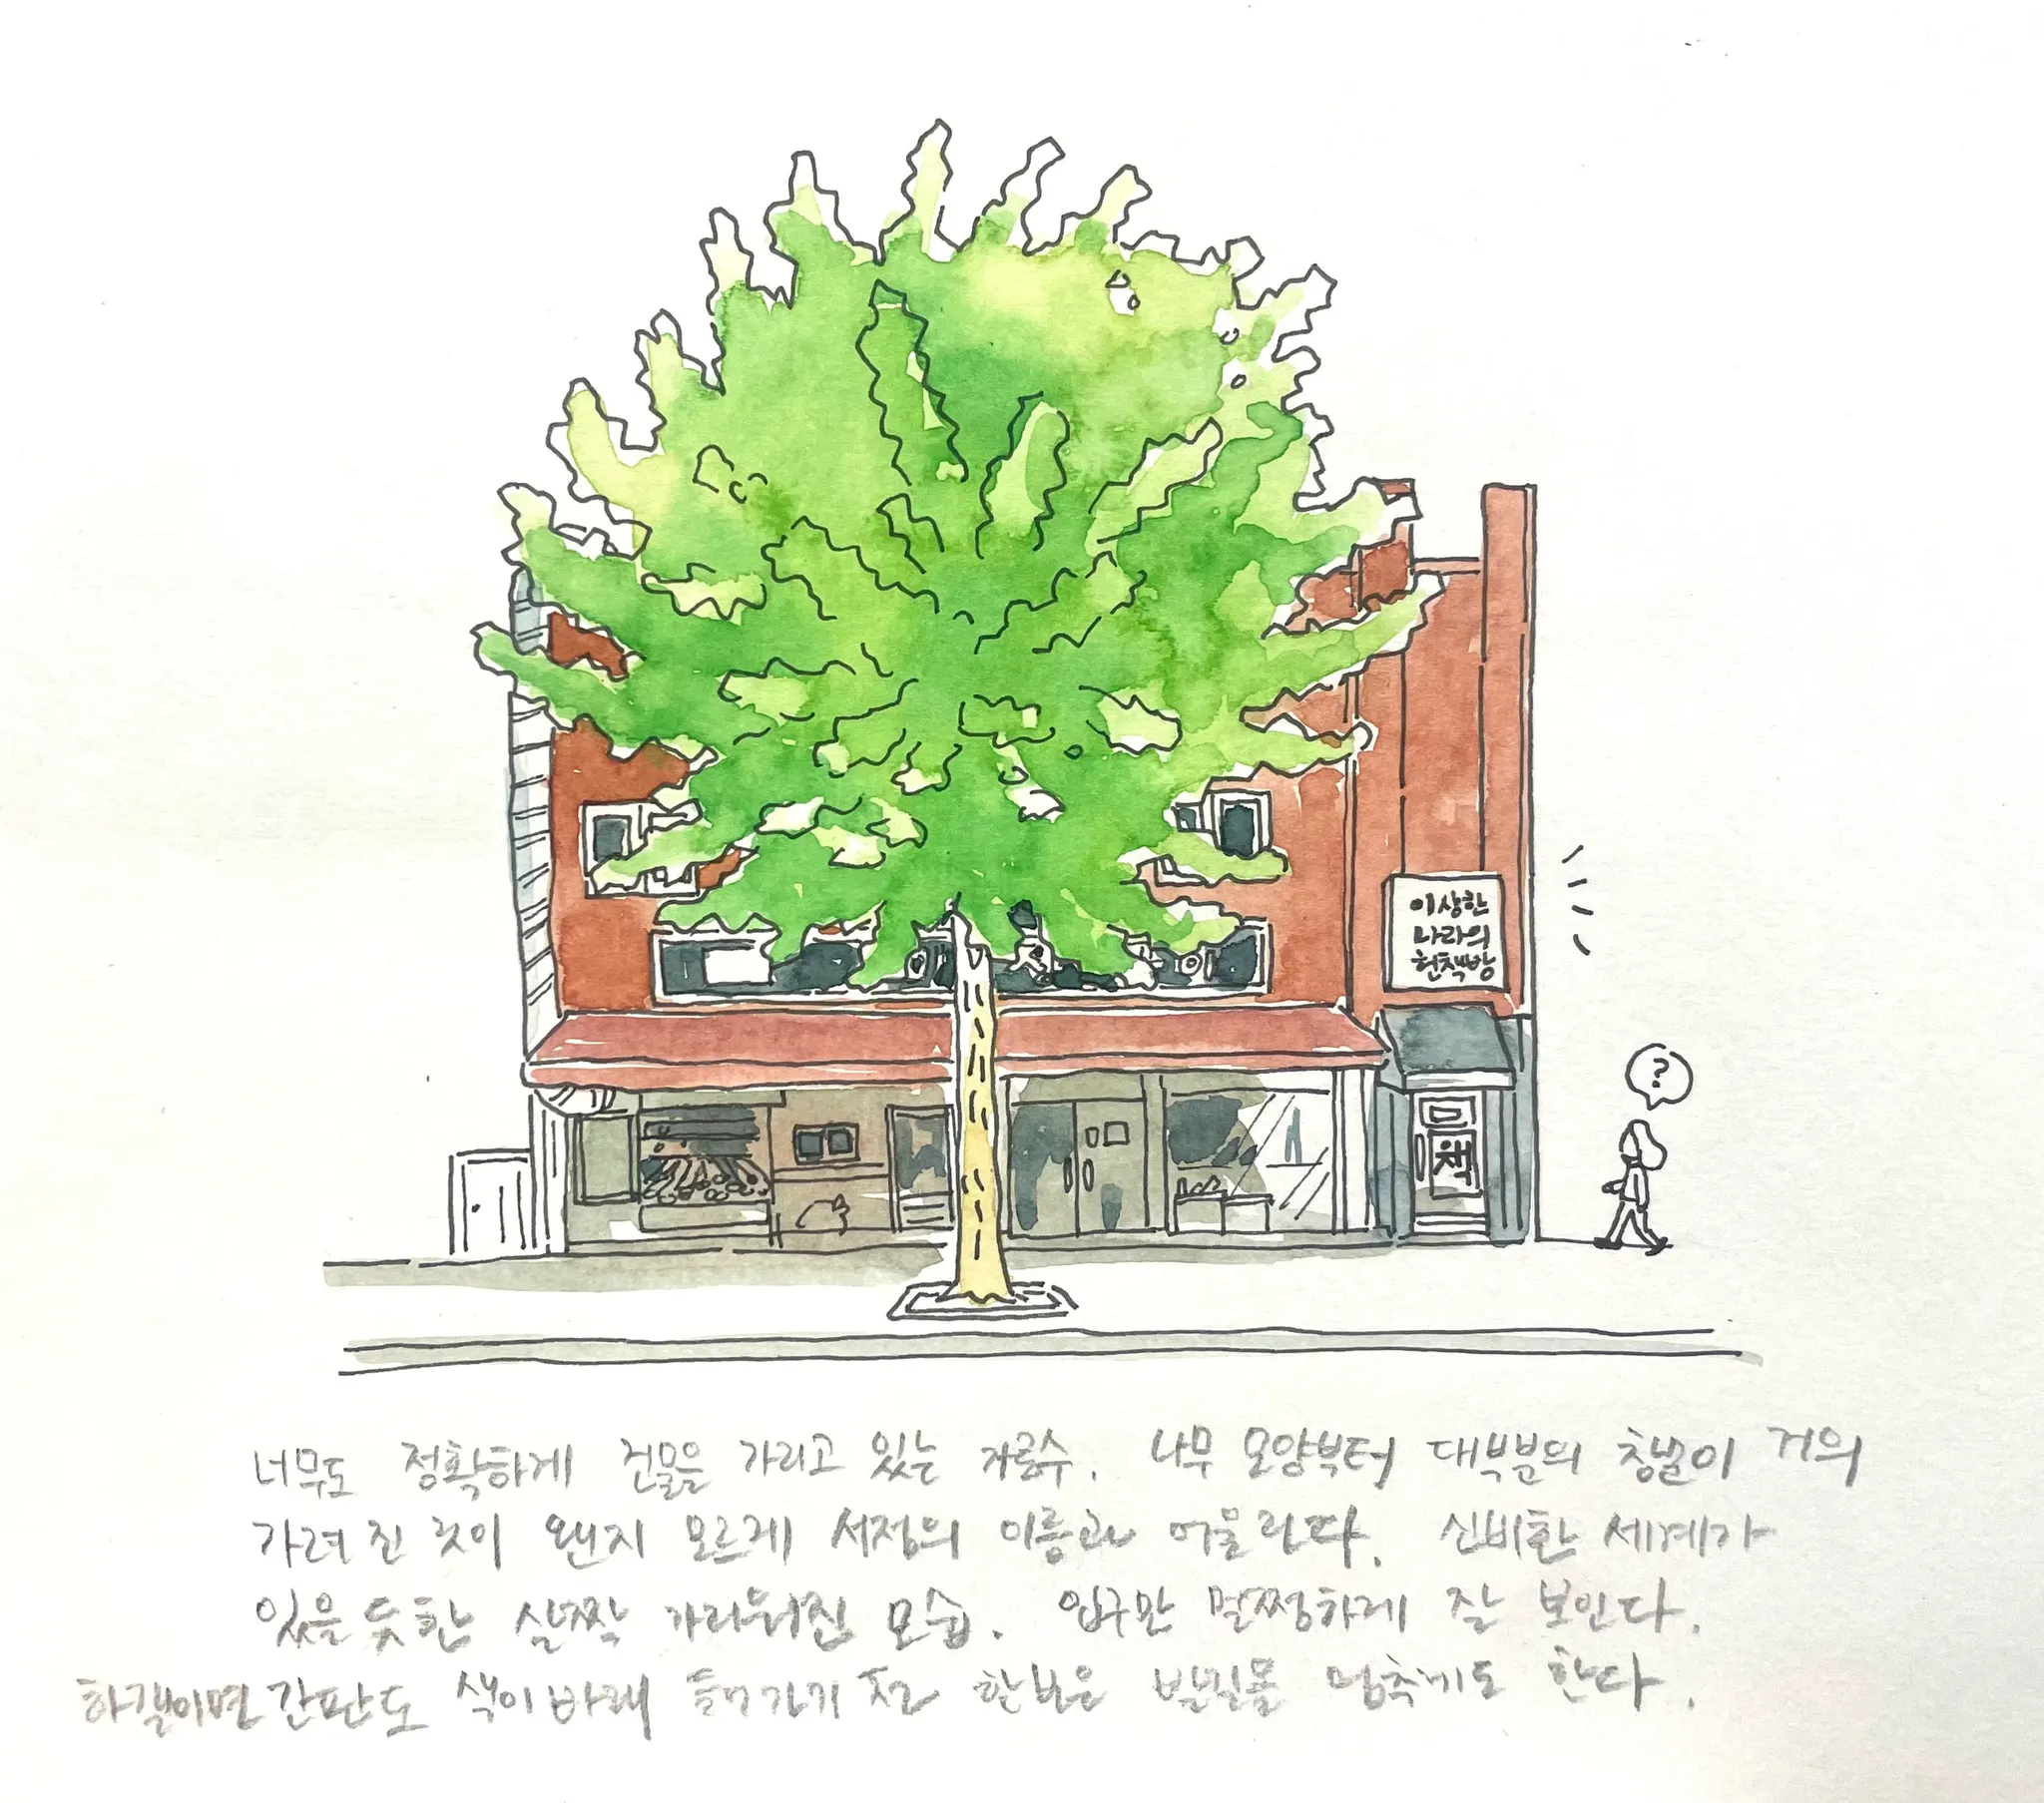 이상한
나라의
헌책방
?
책
너무도 정확하게 건물을 가리고 있는 가로수. 나무 모양부터 대부분의 창문이 거의
가려진 것이 왠지 모르게 서점의 이름과 어울린다. 신비한 세계가
있을 듯한 살짝 가리워진 모습. 입구만 멀쩡하게 잘 보인다.
하필이면 간판도 색이 바래 들어가기 전 한번은 발길을 멈추게도 한다.